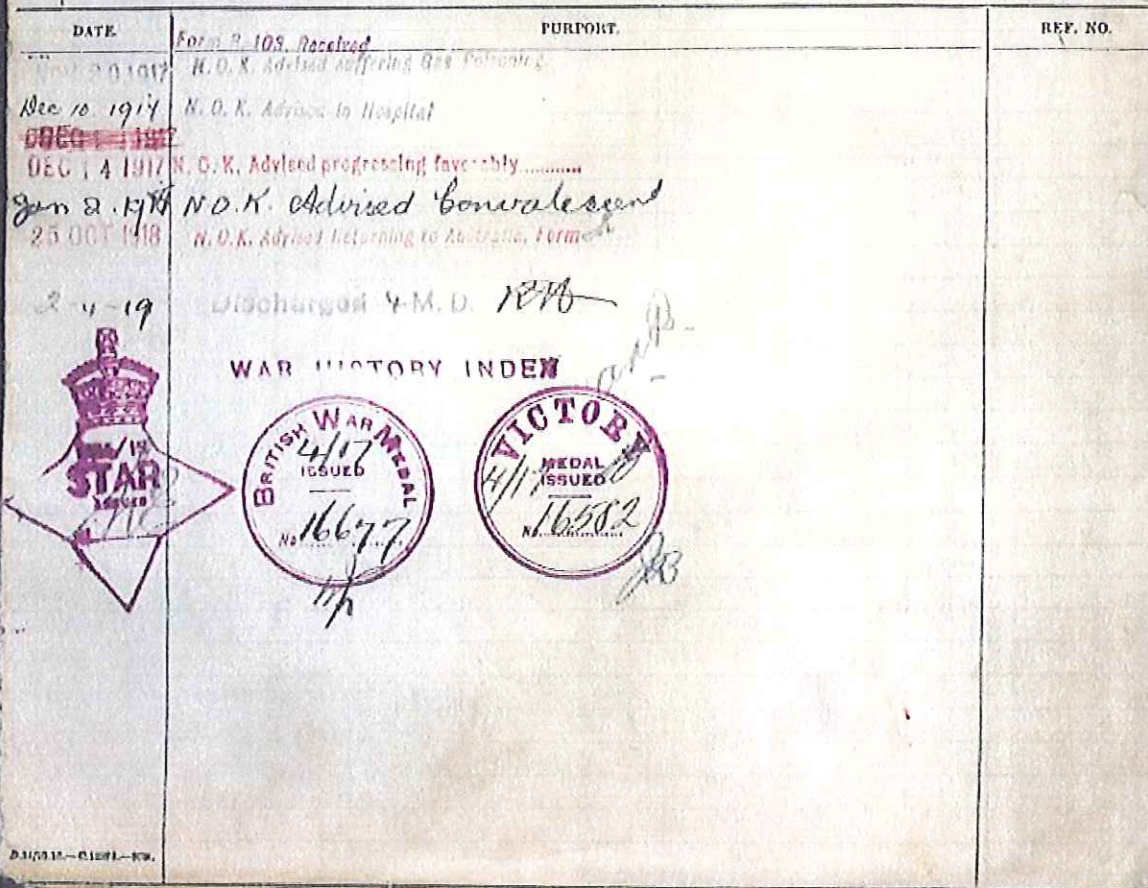 DATE PURPORT. REF. NO.
Form B. 103. Received
NOV 20 1917 N.O.K. Advised suffering Gas Poisoning.
Dec 10. 1917 N.O.K. Advised in Hospital
DEC 1917
DEC 14 1917 N.O.K. Advised progressing favorably............
Jan 2. 1918 N.O.K. Advised Convalescent
25 OCT 1918 N.O.K. Advised Returning to Australia, Form
2-4-19 Discharged 4 M.D.
WAR HISTORY INDEX
STAR
ISSUED
BRITISH WAR MEDAL
4/17
ISSUED
No. 16677
VICTORY
MEDAL
4/17 ISSUED
No. 16582